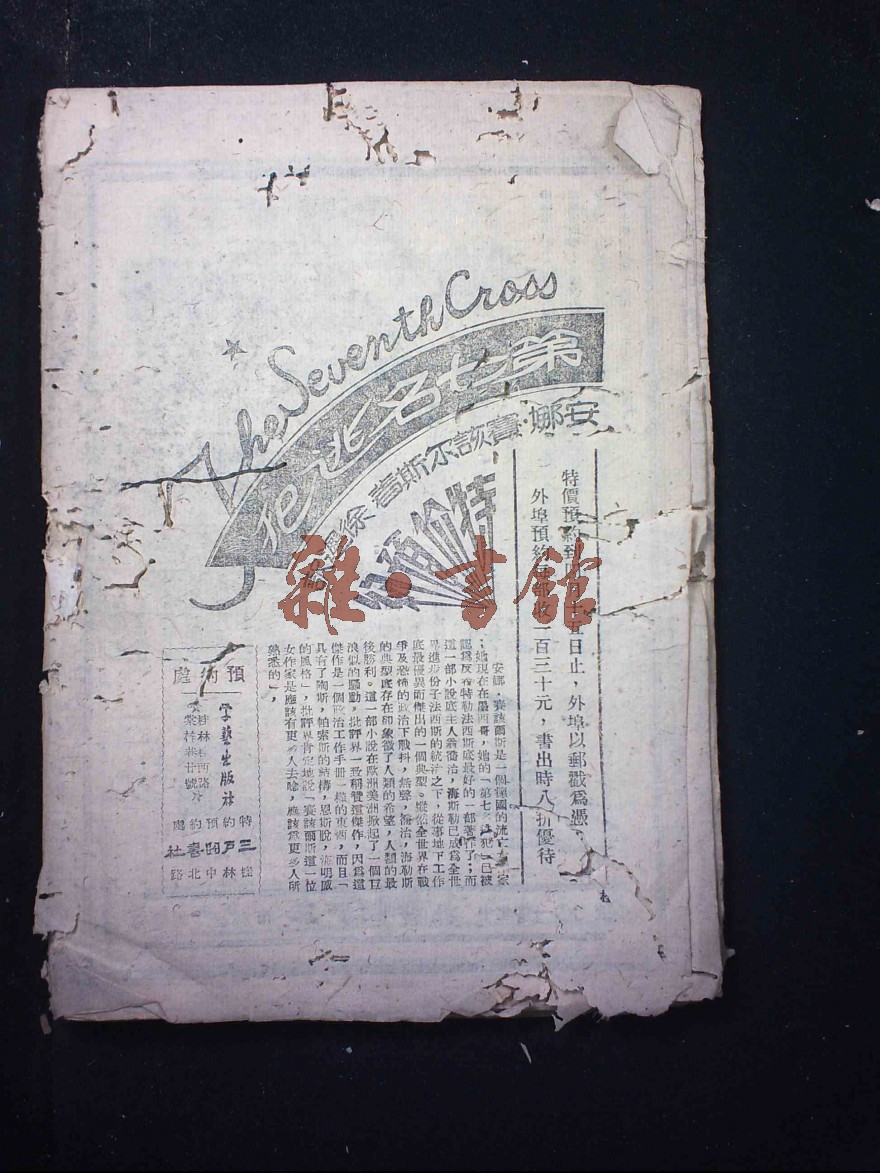 The Seventh Cross
第七名逃犯
安娜·賽該尔斯著
特價預約
雜·書館
特價預約到日止，外埠以郵戳為憑，
外埠預約一百三十元，書出時八折優待
安娜·賽該爾斯是一個德國的流亡家
；她現在在墨西哥，她的「第七犯」已被
認為反希特勒法西斯底最好的一部著作了；而
這一部小說底主人翁喬治，海斯勒已成為全世
界進步份子法西斯的統治之下，從事地下工作
底最優異而傑出的一個典型。縱然全世界在戰
爭及恐怖的政治下戰抖，然，喬治，海勒斯
的典型底存在却象徵了人類的希望，人類的最
後勝利。這一部小說在歐洲美洲掀起了一個巨
浪似的騷動，批評界一致稱贊這傑作，因為這
傑作是一個政治工作手冊一樣的東西，而且「
具有了陶斯，帕索斯的結構，恩斯脫，海明威
的風格」，批評界肯定地說「賽該爾斯這一位
女作家是應該有更多人去唸，應該為更多人所
熟悉的」，
預約處
學藝出版社
桂林西路
巷廿號
特約預約處
三戶圖書社
桂林中北路